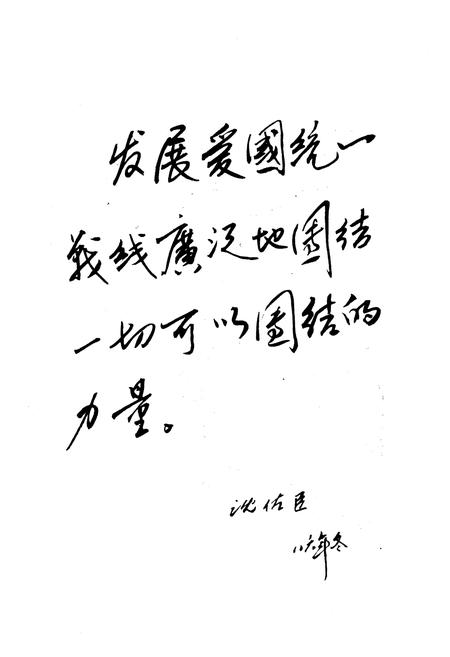 发展爱國统一
戰线廣泛地團结
一切可以團结的
力量。
沈佑臣
八六年冬